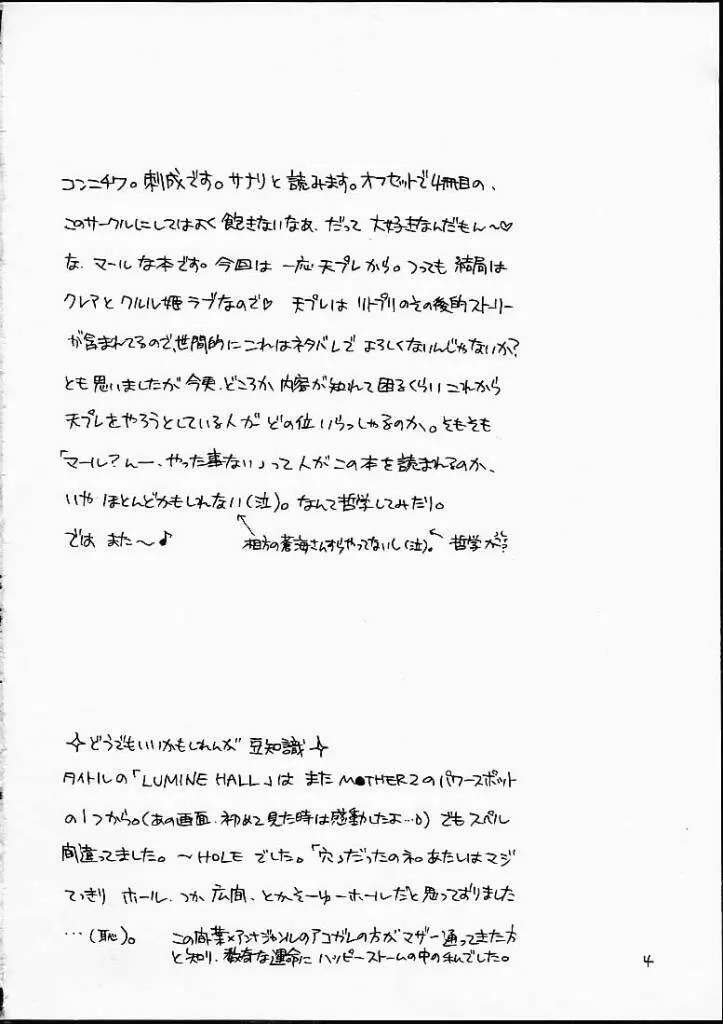 コンニチワ。刺成です。サナリと読みます。オフセットで4冊目の、
このサークルにしてはよく飽きないなぁ、だって大好きなんだもん〜♡
な、マールな本です。今回は一応天プレから。つっても結局は
クレアとクルル姫ラブなので♡ 天プレはリトプリのその後的ストーリー
が含まれてるので、世間的にこれはネタバレでよろしくないんじゃないか?
とも思いましたが今更、どころか内容が知れて困るくらいこれから
天プレをやろうとしている人がどの位いらっしゃるのか。そもそも
「マール?んー、やった事ない」って人がこの本を読まれるのか、
いやほとんどかもしれない(泣)。なんて哲学してみたり。
ではまた〜♪
相方の蒼海さんすらやってないし(泣)。
哲学か?
✧どうでもいいかもしれんが豆知識✧
タイトルの「LUMINE HALL」はまたMOTHER2のパワースポット
の1つから。(あの画面、初めて見た時は感動したよ…)でもスペル
間違ってました。〜HOLEでした。「穴」だったのネ。あたしはマジ
てっきりホール、つか広間、とかそーゆーホールだと思っておりました
…(恥)。
この同業×アンナジャンルのアコガレの方がマザー通ってきた方
と知り、数奇な運命にハッピーストームの中の私でした。
4